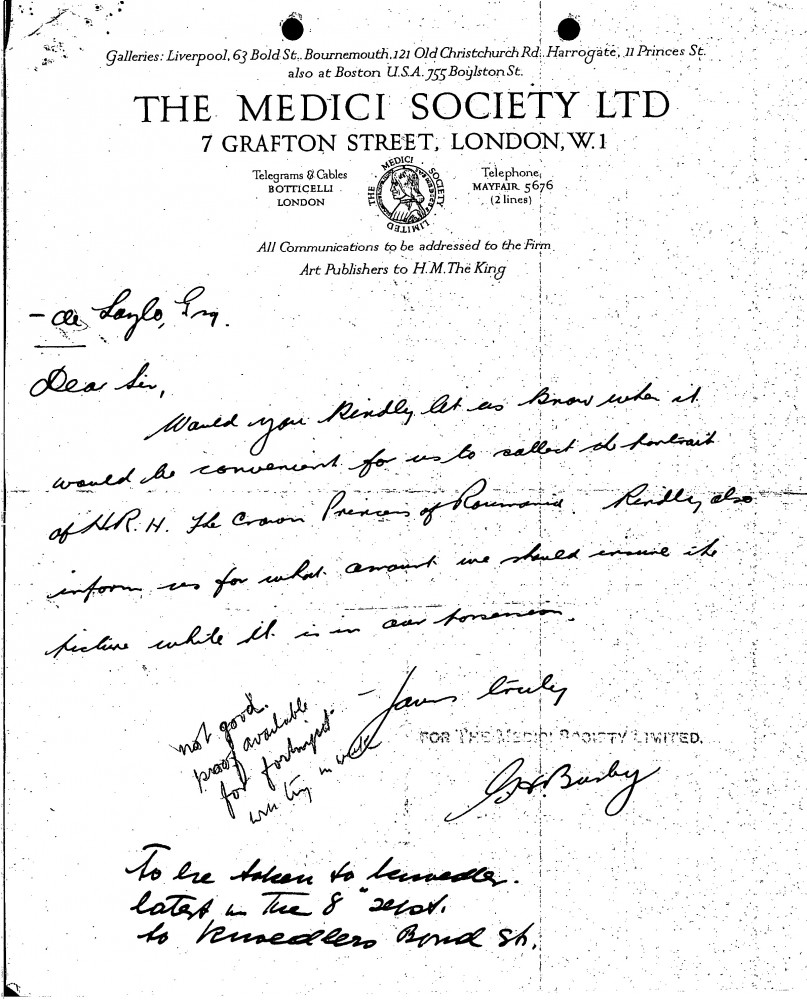 Galleries: Liverpool, 63 Bold St., Bournemouth, 121 Old Christchurch Rd., Harrogate, 11 Princes St.
also at Boston U.S.A. 755 Boylston St.
THE MEDICI SOCIETY LTD
7 GRAFTON STREET, LONDON, W.1
Telegrams & Cables
BOTTICELLI
LONDON
THE MEDICI SOCIETY LIMITED
Telephone,
MAYFAIR 5676
(2 lines)
All Communications to be addressed to the Firm
Art Publishers to H.M. The King
- de Laszlo, Esq.
Dear Sir,
Would you kindly let us know when it
would be convenient for us to collect the portrait
of H.R.H. The Crown Princess of Roumania. Kindly also
inform us for what amount we should insure the
picture while it is in our possession.
Yours truly
FOR THE MEDICI SOCIETY LIMITED.
Busby
not good.
proof available
for fortnight.
will try in week
To be taken to
latest on the 8 Sept.
to Knoedlers Bond St.